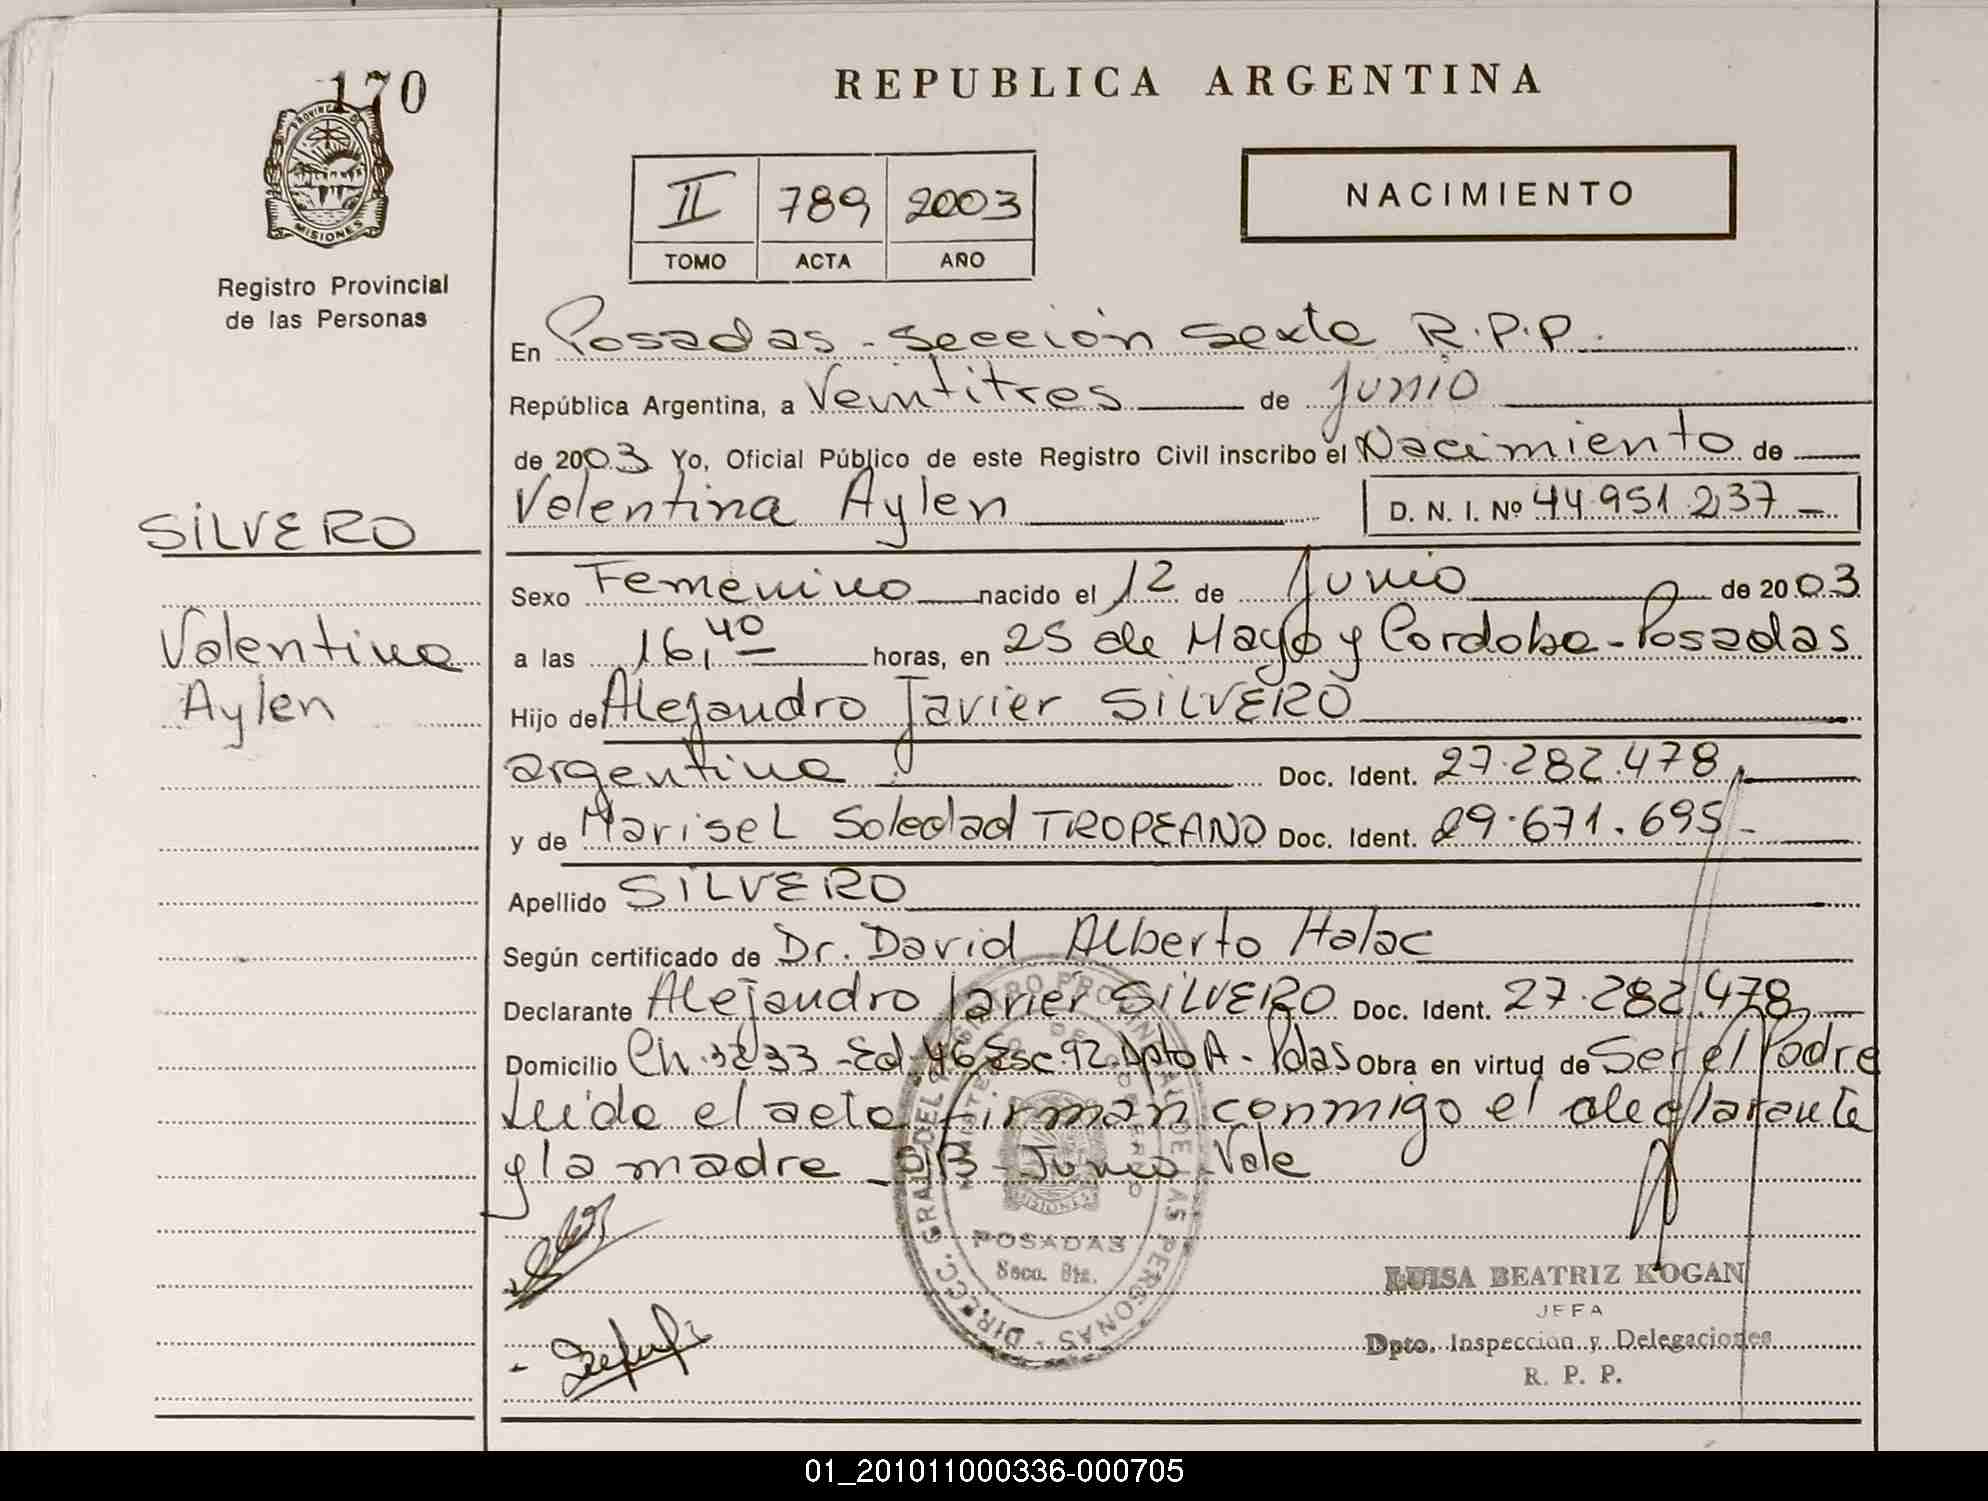 170
REPUBLICA ARGENTINA
PROVINCIA DE
MISIONES
Registro Provincial
de las Personas
II 789 2003
TOMO ACTA AÑO
NACIMIENTO
En Posadas - Sección Sexta R.P.P.
República Argentina, a Veintitres de junio
de 2003 Yo, Oficial Público de este Registro Civil inscribo el Nacimiento de
Valentina Aylen D. N. I. Nº 44.951.237
SILVERO
Valentina
Aylen
Sexo Femenino nacido el 12 de Junio de 2003
a las 16,40 horas, en 25 de Mayo y Cordoba - Posadas
Hijo de Alejandro Javier SILVERO
argentina Doc. Ident. 27.282.478
y de Marisel Soledad TROPEANO Doc. Ident. 29.671.695
Apellido SILVERO
Según certificado de Dr. David Alberto Halac
Declarante Alejandro Javier SILVERO Doc. Ident. 27.282.478
Domicilio Ch. 32 33 - Ed. 46 Esc. 92 Dpto A - Pdas Obra en virtud de Ser el Padre
Leído el acta firman conmigo el declarante
y la madre - Junio Vale
DIRECC. GRAL. DEL REGISTRO PROVINCIAL DE LAS PERSONAS
MINISTERIO DE GOBIERNO
MISIONES
POSADAS
Secc. 6ta.
LUISA BEATRIZ KOGAN
JEFA
Dpto. Inspección y Delegaciones
R. P. P.
01_201011000336-000705